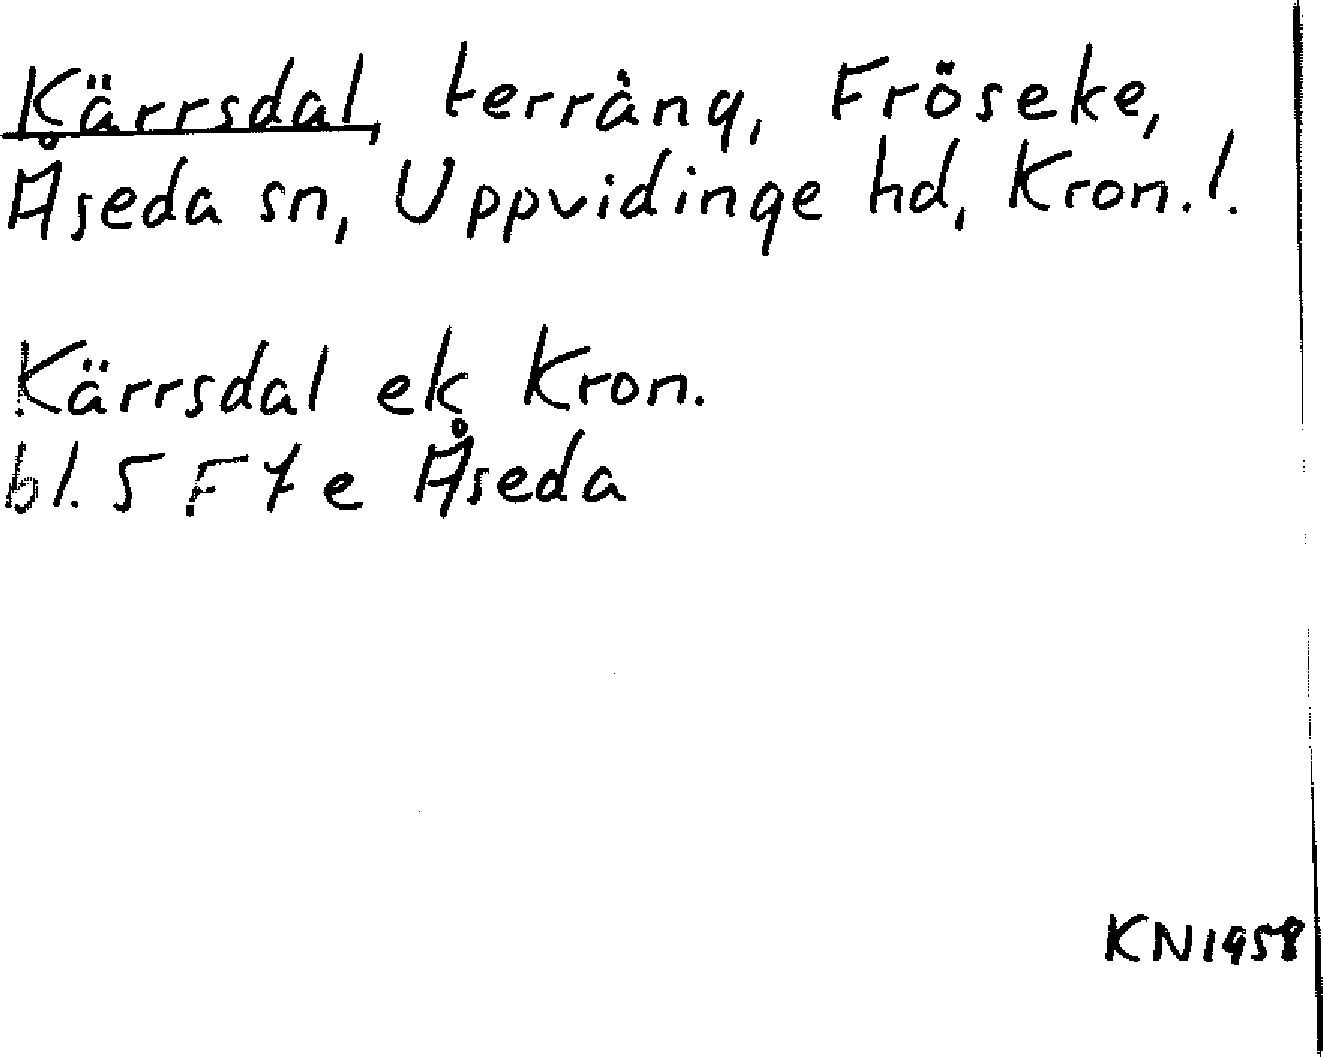 Kärrsdal, terräng, Fröseke,
Åseda sn, Uppvidinge hd, Kron. !.
Kärrsdal ek Kron.
bl. 5 F 7 e Åseda
KN 1958